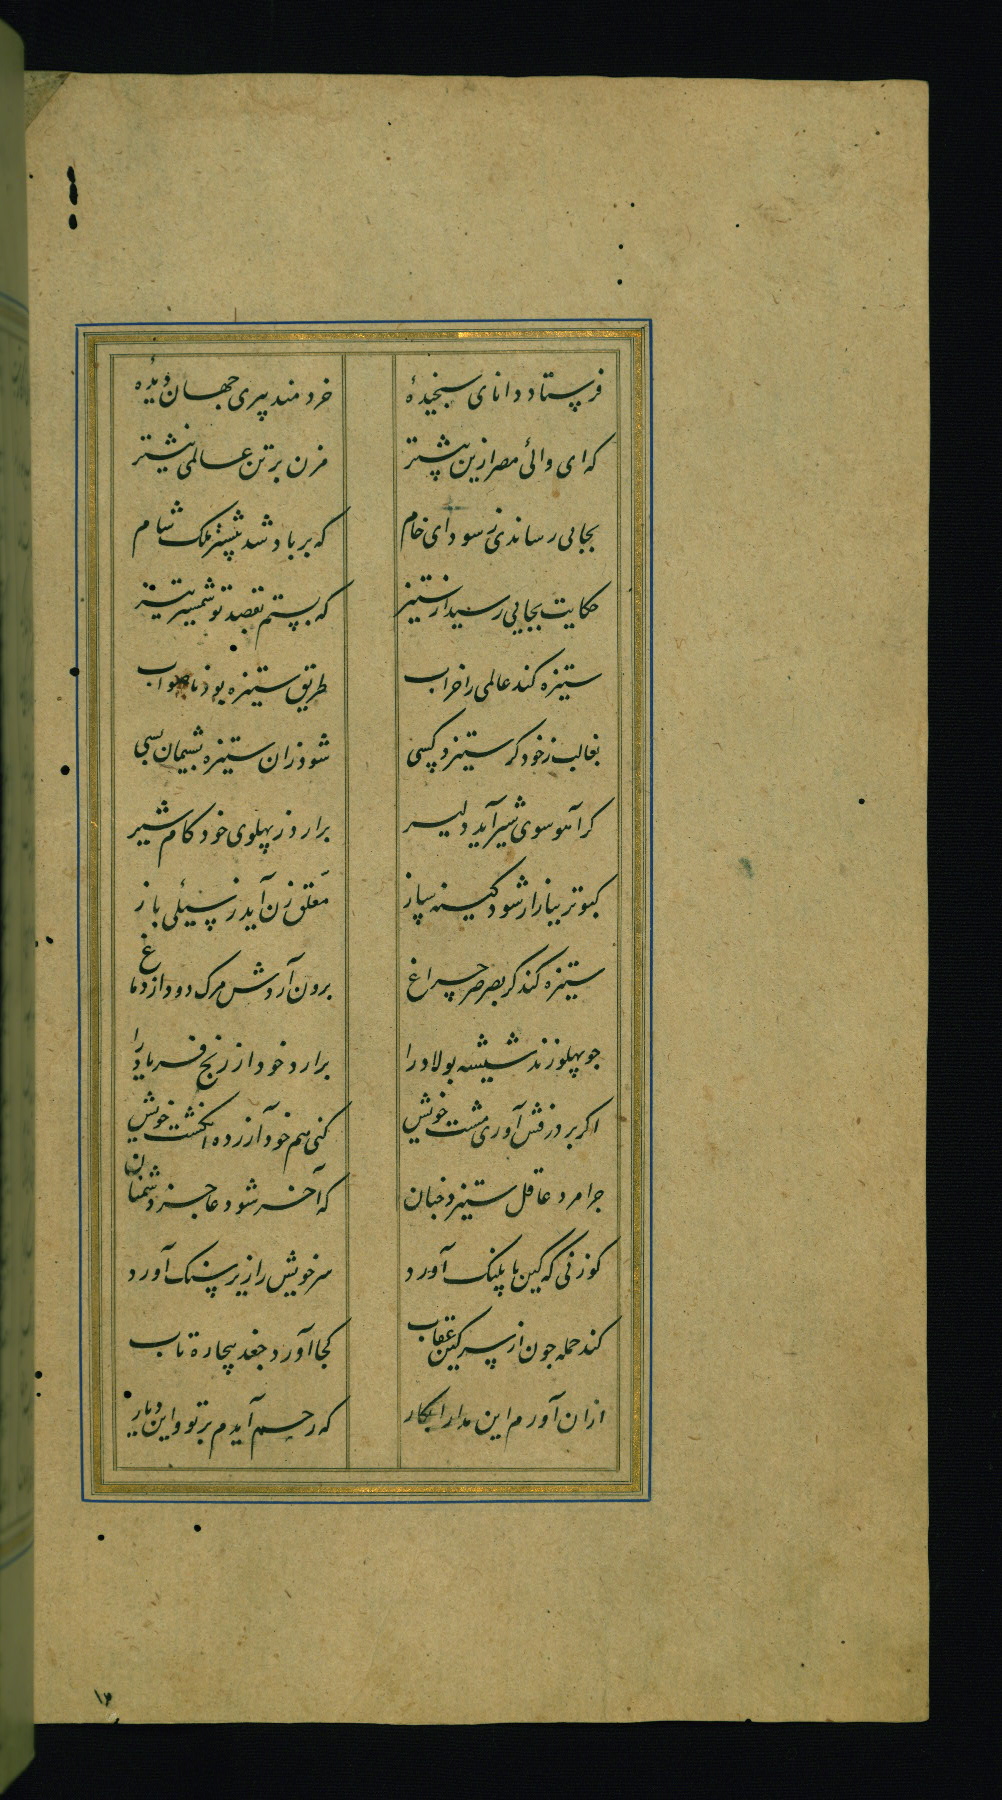 فرستاد دانای سنجیدهٔ خردمند پیری جهان دیدهٔ
که ای والئ مصر ازین پیشتر مزن بر تن عالمی نیشتر
بجایی رساندی ز سودای خام که بر باد شد پیشتر ملک شام
حکایت بجایی رسید از ستیز که بستم بقصد تو شمشیر تیز
ستیزه کند عالمی را خراب طریق ستیزه بود ناصواب
بغالب ز خود کر ستیزد کسی شود زان ستیزه پشیمان بسی
کر آهو سوی شیر آید دلیر برارد ز پهلوی خود کام شیر
کبوتر ببازار شود کینه ساز معلق زن آید ز سیلی باز
ستیزه کند کر بصرصر چراغ برون آردش مرک دود از دماغ
جو پهلو زند شیشه بولاد را برارد خود از رنج فریاد را
اکر بر درفش آوری مشت خویش کنی هم خود آزرده انکشت خویش
جرا مرد عاقل ستیزد جنان که آخر شود عاجز دشمنان
کوزنی که کین با پلنک آورد سر خویش را زیر سنک آورد
کند حمله جون از پس کین عقاب کجا آورد جغد بیچاره تاب
ازان آورم این مدارا بکار که رحم آیدم بر تو و این دیار
۱۴